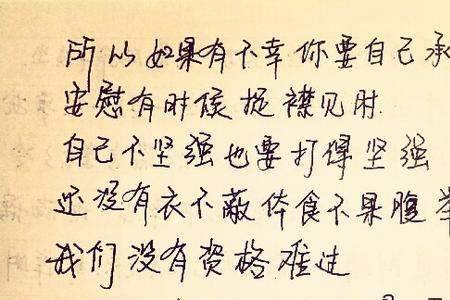 所以如果有不幸你要自己承
安慰有时候捉襟见肘
自己不坚强也要打得坚强
还没有衣不蔽体食不果腹举
我们没有资格难过